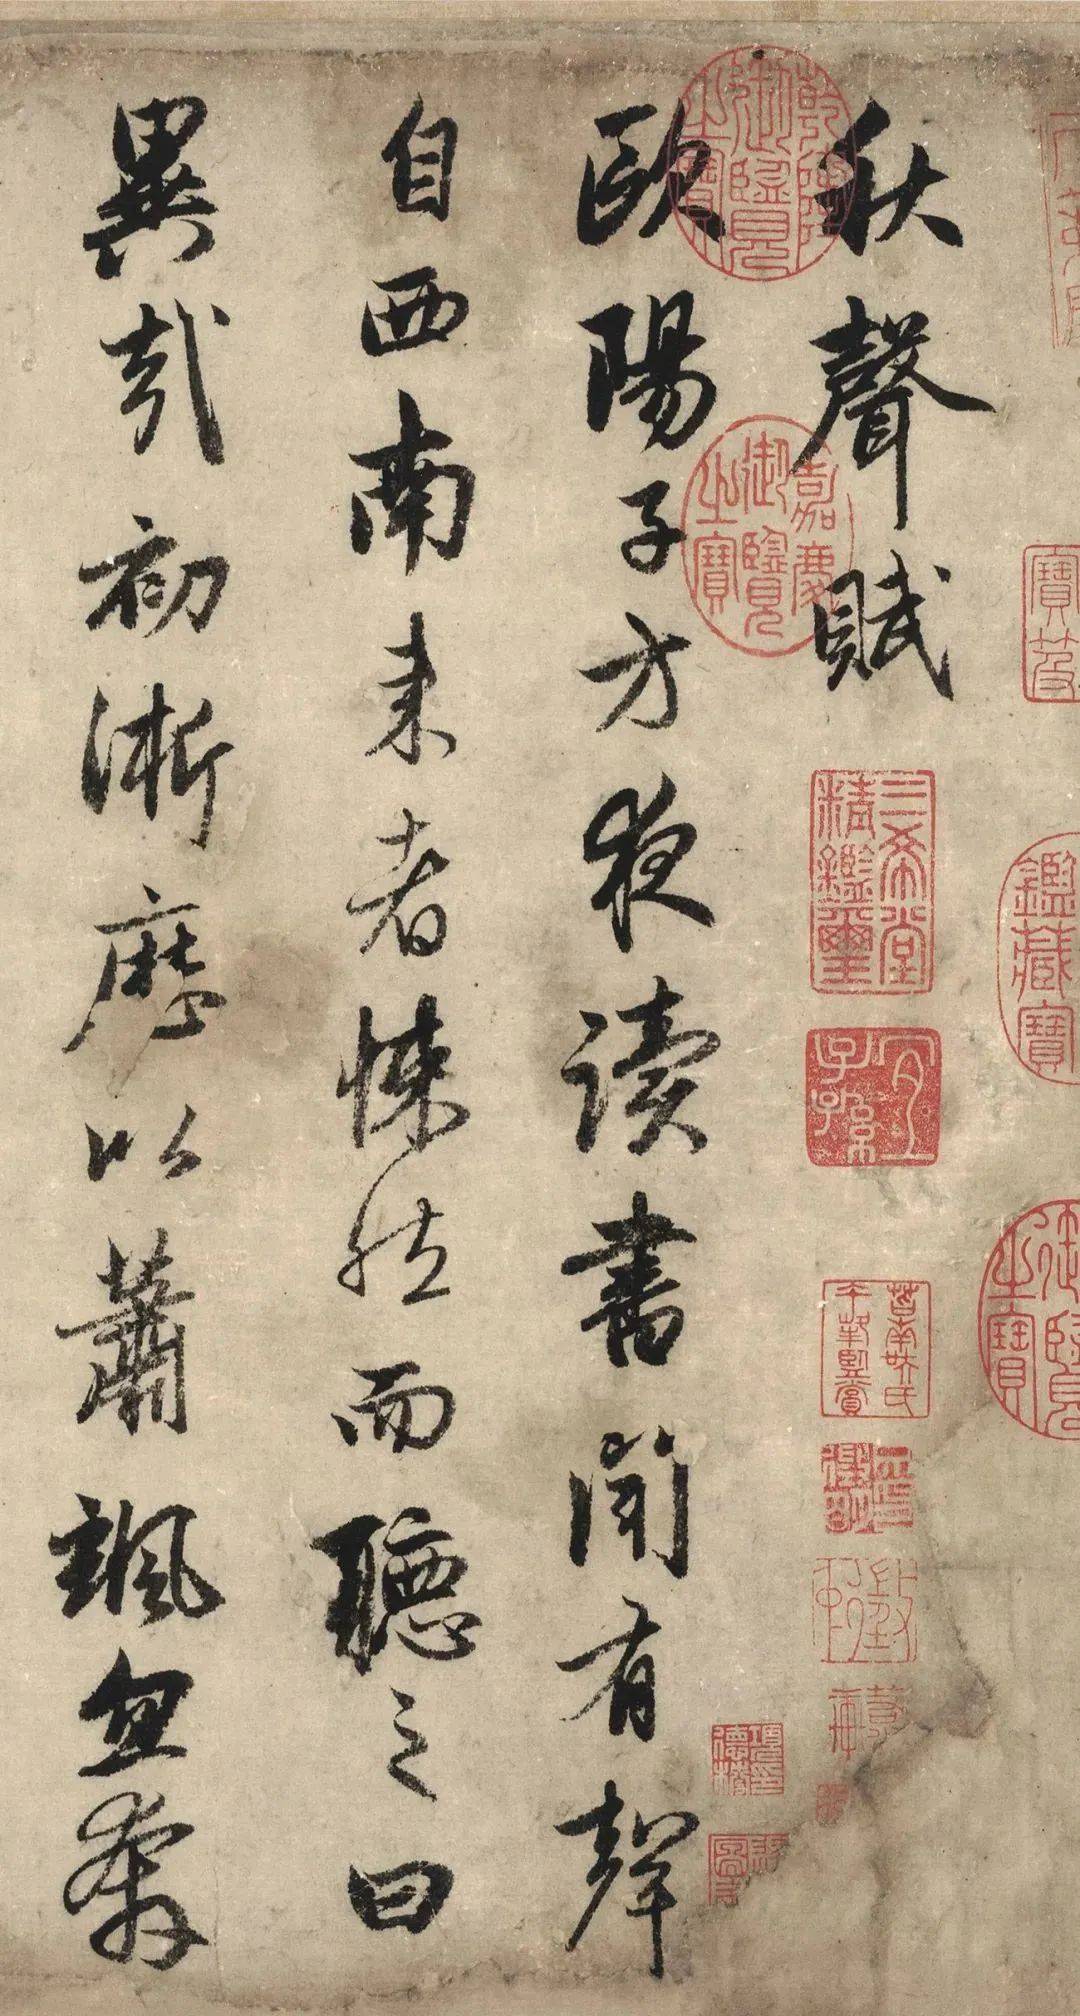 寶笈
鑑藏寶
御覽之寶
秋聲賦
三希堂精鑑璽
宜子孫
乾隆御覽之寶
嘉慶御覽之寶
歐陽子方夜讀書聞有聲
自西南来者悚然而聽之曰
異哉初淅歷以蕭颯忽奔